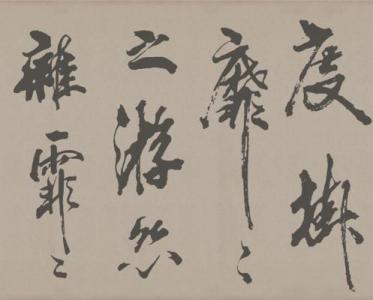 度掛
靡〻
之游絲
雜霏〻